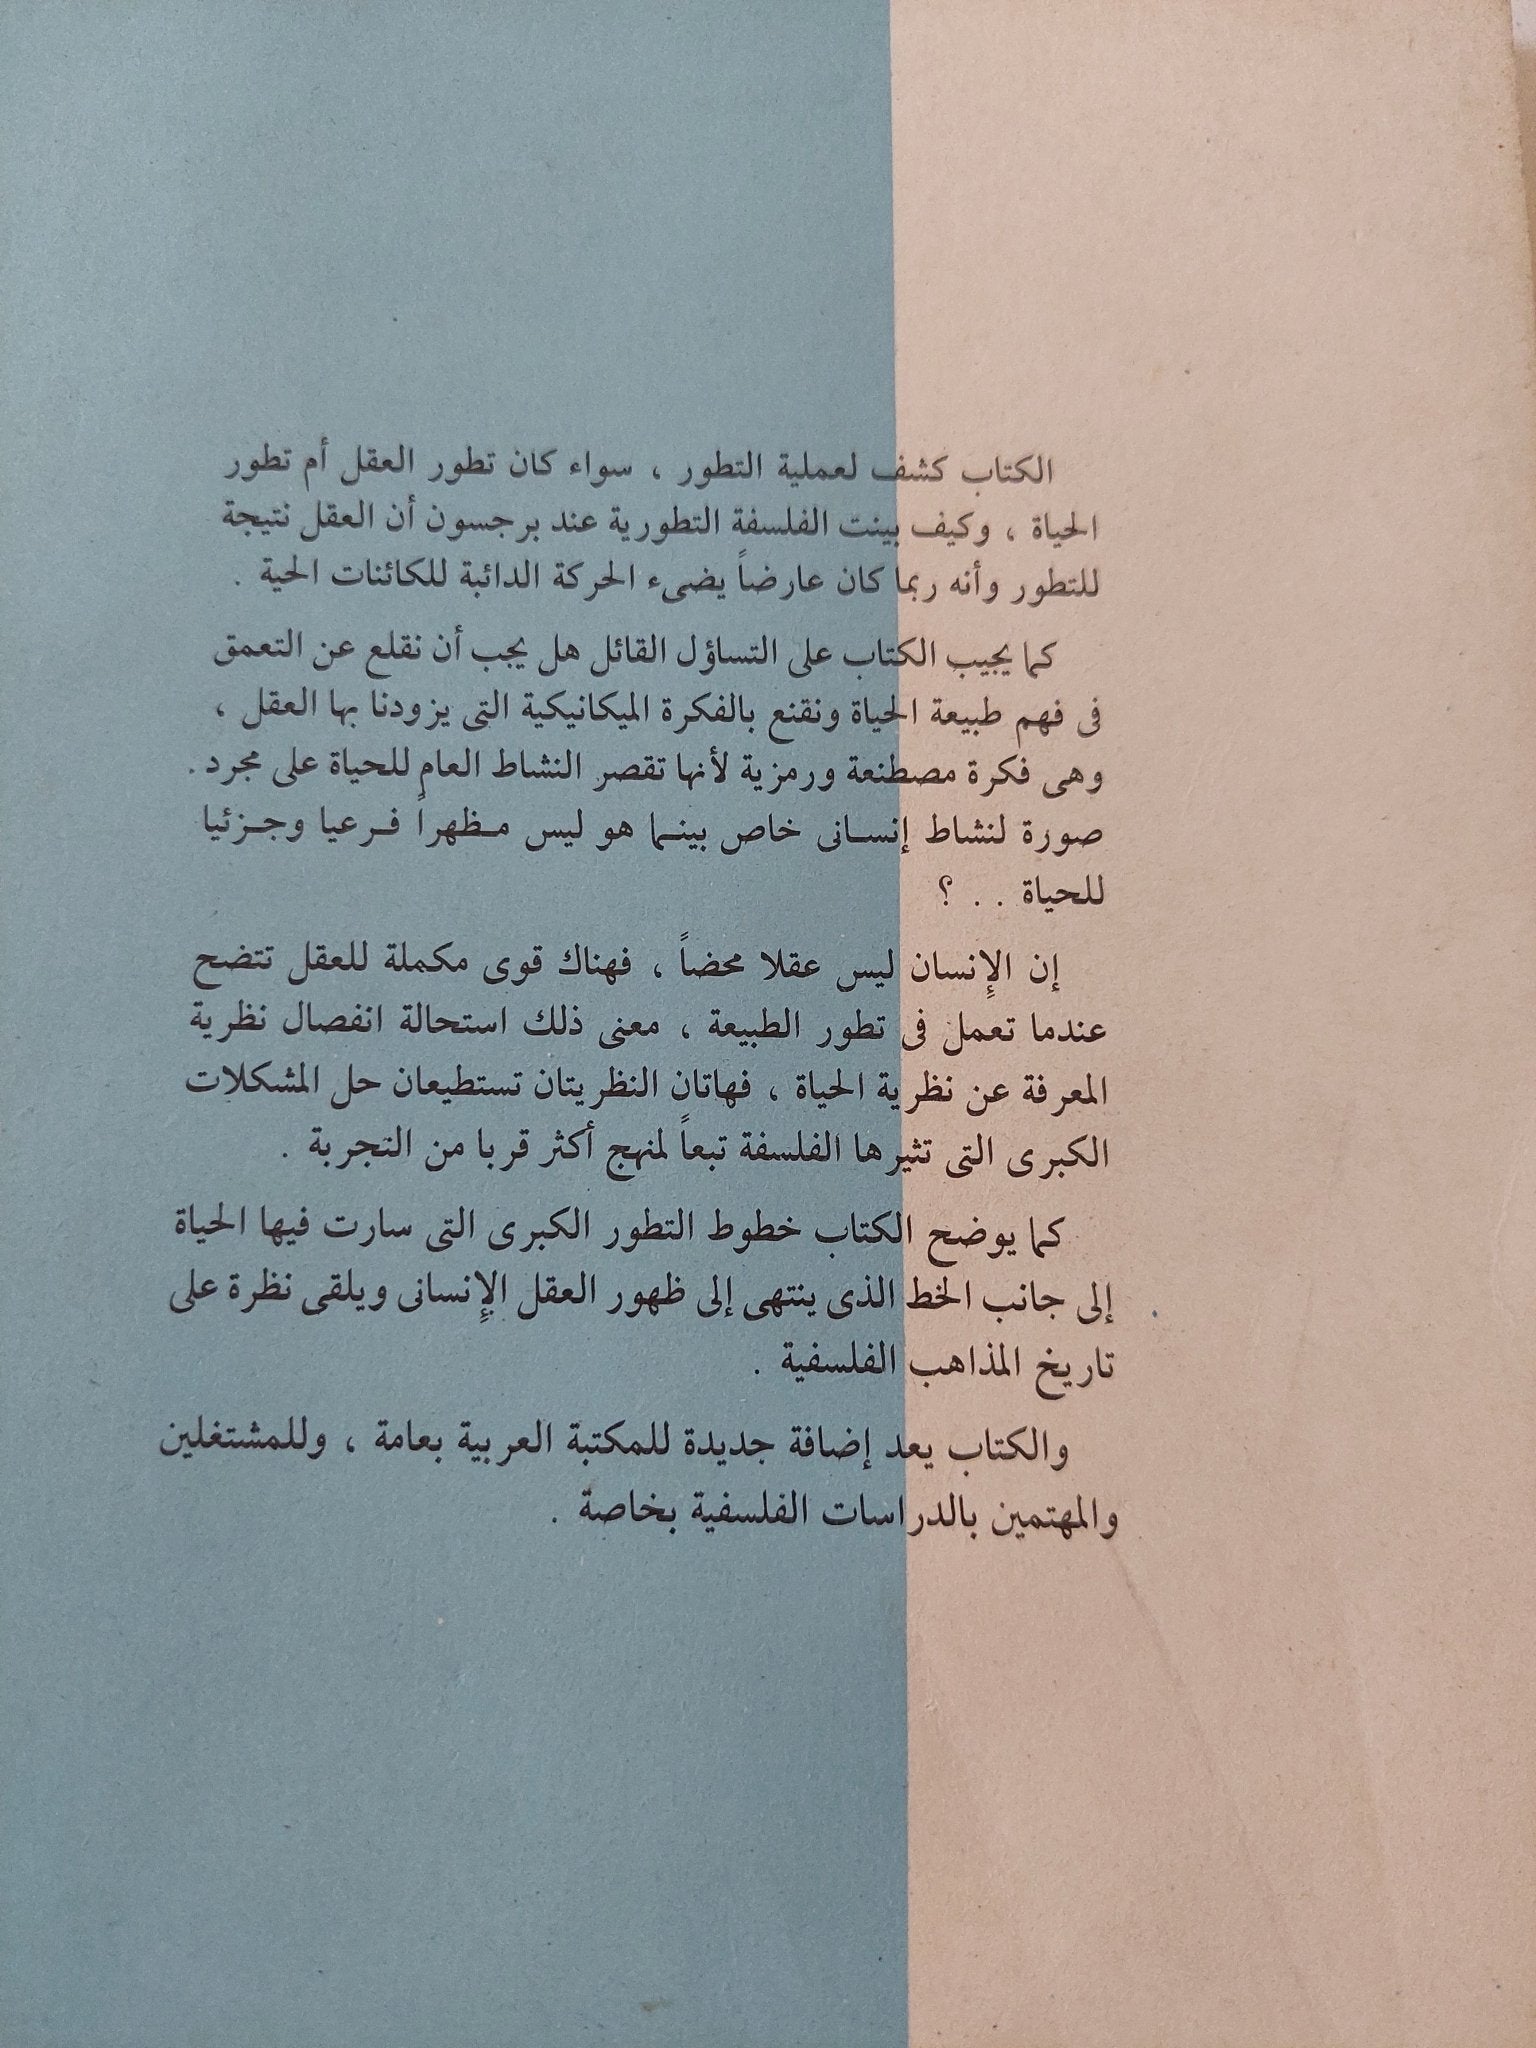 الكتاب كشف لعملية التطور ، سواء كان تطور العقل أم تطور
الحياة ، وكيف بينت الفلسفة التطورية عند برجسون أن العقل نتيجة
للتطور وأنه ربما كان عارضاً يضىء الحركة الدائبة للكائنات الحية .
كما يجيب الكتاب على التساؤل القائل هل يجب أن نقلع عن التعمق
فى فهم طبيعة الحياة ونقنع بالفكرة الميكانيكية التى يزودنا بها العقل ،
وهى فكرة مصطنعة ورمزية لأنها تقصر النشاط العام للحياة على مجرد .
صورة لنشاط إنسانى خاص بينما هو ليس مظهراً فرعيا وجزئيا
للحياة . . ؟
إن الإنسان ليس عقلا محضاً ، فهناك قوى مكملة للعقل تتضح
عندما تعمل فى تطور الطبيعة ، معنى ذلك استحالة انفصال نظرية
المعرفة عن نظرية الحياة ، فهاتان النظريتان تستطيعان حل المشكلات
الكبرى التى تثيرها الفلسفة تبعاً لمنهج أكثر قربا من التجربة .
كما يوضح الكتاب خطوط التطور الكبرى التى سارت فيها الحياة
إلى جانب الخط الذى ينتهى إلى ظهور العقل الإنسانى ويلقى نظرة على
تاريخ المذاهب الفلسفية .
والكتاب يعد إضافة جديدة للمكتبة العربية بعامة ، وللمشتغلين
والمهتمين بالدراسات الفلسفية بخاصة .